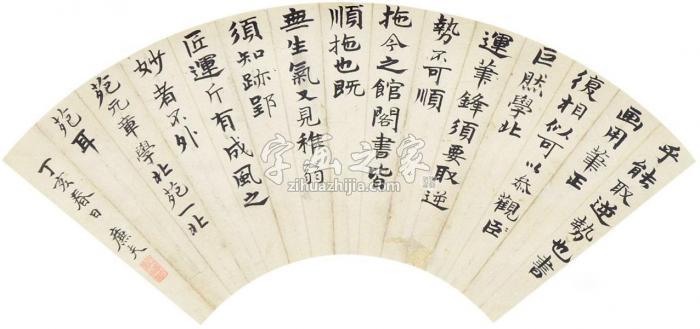 乎能取逆勢也書
画用筆正
復相似可以叅觀臣
巨然學北
運筆鋒須要取逆
勢不可順
拖今之館閣書皆
順拖也既
無生氣又見稚弱
須知跡郢
匠運斤有成風之
妙者不外
苑元章學北苑一北
苑耳
丁亥春日 廉夫
字画之家
zihuazhijia.com